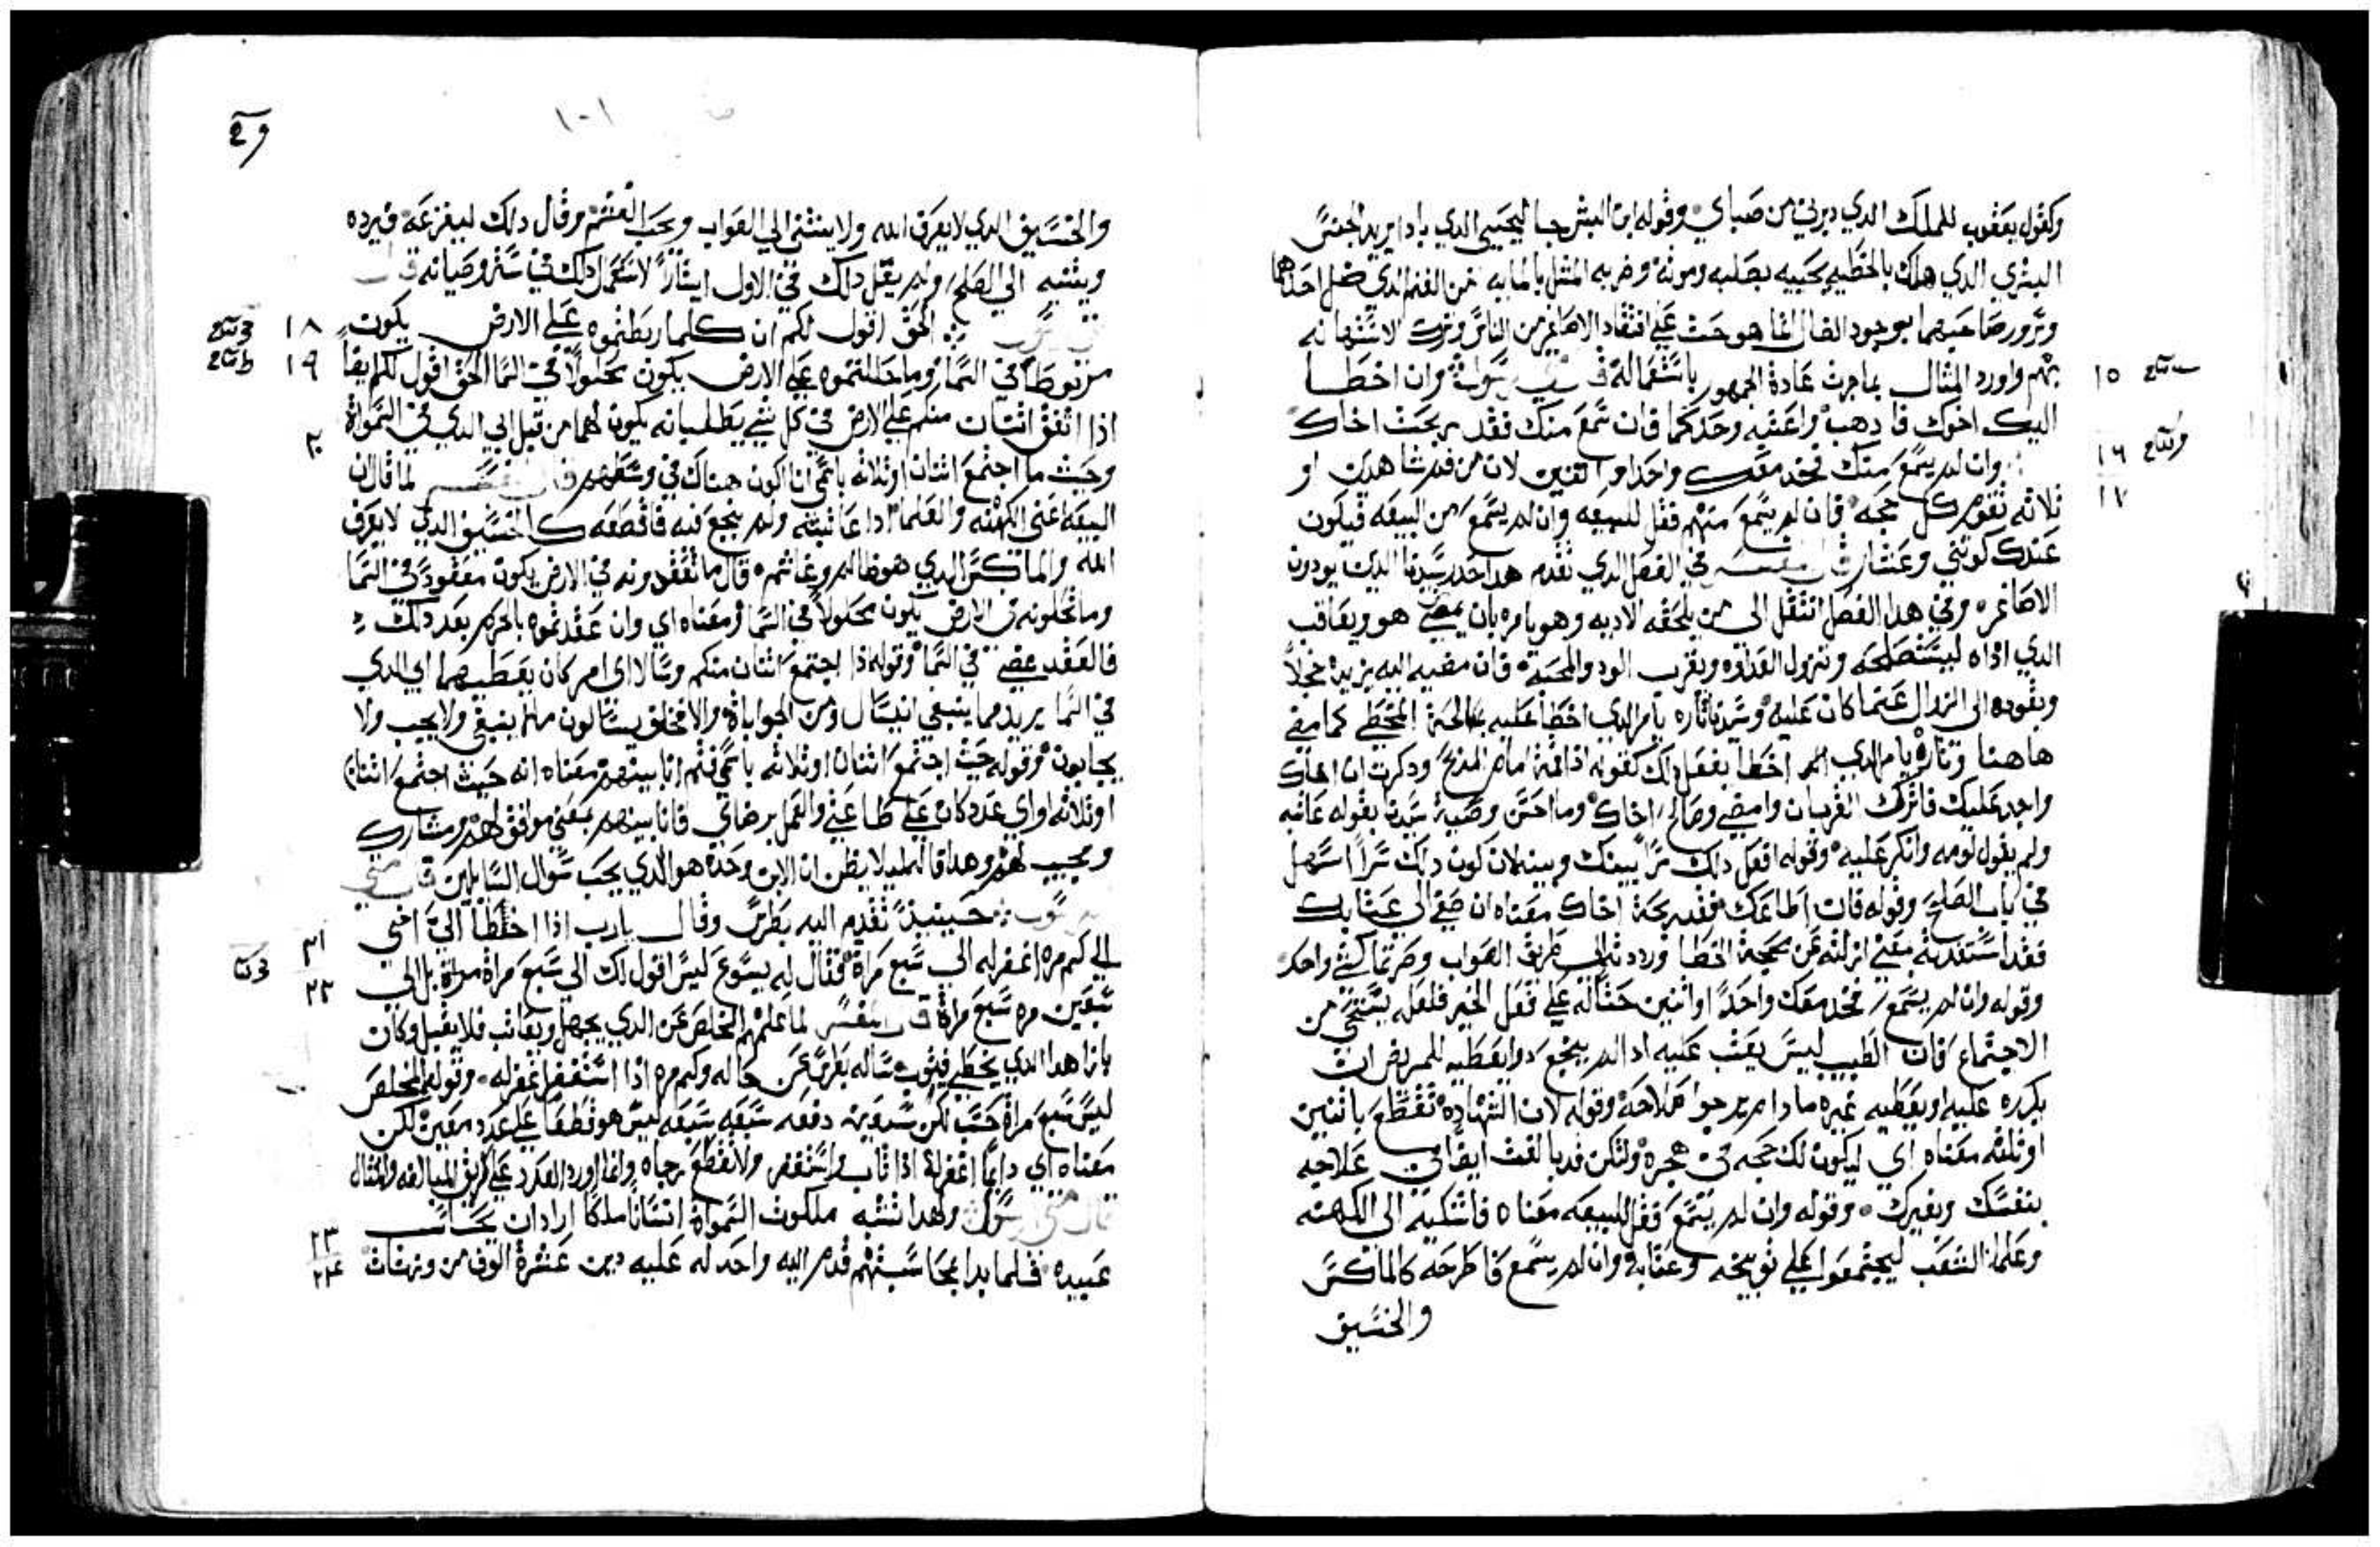 وكقول يعقوب للملك الدي دبرني من صباي وقوله ابن البشر جا ليحيي الدي باد ايريد الجنس
البشري الدي هلك بالخطيه يحييه بصلبه وموته وضربه المثل بالمايه من الغنم الدي ضل احدها
وسرور صاحبها بوجود الضال انما هو حث علي افتقاد الاصاغر من الناس وترك الاستهانه
بهم واورد المثال بما جرت عادة الجمهور باستعماله قال متي الرسول وان اخطا
١٥
اليك اخوك فادهب واعتبه وحدكما فان سمع منك فقد ربحت اخاك
وان لم يسمع منك فخد معك واحدا او اتنين لان من فم شاهدين او
١٦
ثلاثه تقوم كل حجه فان لم يسمع منهم فقل للبيعه وان لم يسمع من البيعه فيكون
١٧
عندك كوثني وعشار قال المفسر في الفصل الدي تقدم هدا حدر سيدنا الدين يودون
الاصاغر وفي هدا الفصل انتقل الي من يلحقه الاديه وهو يامره بان يمضي هو ويعاتب
الدي اداه ليستصلحه وتزول العداوه ويقرب الود والمحبه فان مضيه اليه يزيده خجلاً
ويقوده الي الزوال عما كان عليه وسيدنا تاره يامر الدي اخطا عليه بمصالحة المخطي كما مضي
هاهنا وتاره يامر الدي اخطا بفعل دلك كقوله ادا قمة امام المدبح ودكرت ان اخاك
واجد عليك فاترك القربان وامضي وصالح اخاك وما احسن وصية سيدنا بقوله عاتبه
ولم يقول لومه وانكر عليه وقوله افعل دلك سراً بينك وبينه لان كون دلك سراً اسهل
في باب الصلح وقوله فان اطاعك فقد ربحة اخاك معناه ان صغي الي عتابك
فقد استفدته بمعني ازلته عن محجة الخطا ورددته الي طريق الصواب وصرتما كشي واحد
وقوله وان لم يسمع فخد معك واحداً او اثنين حثاله علي فعل الخير فلعله يستحي من
الاجتماع فان الطبيب ليس يعتب عليه ادا لم ينجع دوا يعطيه للمريض ان
يكرره عليه او يعطيه غيره ما دام يرجوا صلاحه وقوله لان الشهاده تقطع باثنين
او ثلثه معناه اي ليكون لك حجه في هجره ولتكن قد بالغت ايضا في علاجه
بنفسك وبغيرك وقوله وان لم يسمع فقل للبيعه معناه فاشكيه الي الكهنه
وعلما الشعب ليجتمعوا علي توبيخه وعتابه وان لم يسمع فاطرحه كالماكس
والخسيق
١٠١
والخسيق الدي لا يعرف الله ولا ينثني الي الصواب ويحب الغشم وقال دلك ليفزعه فيرده
ويثنيه الي الصلح ولم يقل دلك في الاول ايثاراً لاستعمال دلك في ستر وصيانه قال
متي الرسول الحق اقول لكم ان كلما ربطتموه علي الارض يكون
١٨
مربوطاً في السما وما حللتموه علي الارض يكون محلولاً في السما الحق اقول لكم ايضاً
١٩
ادا اتفق اثنان منكم علي الارض في كل شي يطلبانه يكون لهما من قبل ابي الدي في السمواة
وحيث ما اجتمع اثنان او ثلاثه باسمي انا اكون هناك في وسطهم قال المفسر لما قال ان
٢٠
البيعه اعني الكهنه والعلما ادا عاتبته ولم ينجع فيه فاقطعه كالخسيق الدي لا يعرف
الله والماكس الدي هو ظالم وغاشم قال ما تعقدونه في الارض يكون معقوداً في السما
وما تحلونه في الارض يكون محلولاً في السما ومعناه اي وان عقدتموه بالحرم بعد دلك
فالعقد يمضي في السما وقوله ادا اجتمع اثنان منكم وسالا اي امر كان يعطيهما ابي الدي
في السما يريد مما ينبغي ان يسال ومن الجواباة والا فخلق يسالون ما لم ينبغي ولا يجب ولا
يجابون وقوله حيث اجتمع اثنان او ثلاثه باسمي فثم انا بينهم معناه انه حيث اجتمع اثنان
او ثلاثه او اي عدد كان علي طاعتي والعمل برضاي فانا بينهم بمعني موافق لهم ومشارك
ومجيب لهم وهدا قاله ليلا يظن ان الابن وحده هو الدي يجيب سوال السايلين قال متي
الرسول حينيذ تقدم اليه بطرس وقال يارب اذا اخطا الي اخي
٢١
الي كم مره اغفر له الي سبع مراة فقال له يسوع ليس اقول لك الي سبع مراة مراة بل الي
٢٢
سبعين مره سبع مراة قال المفسر لما علمهم المخلص عن الدي يجهل ويعاتب فلا يقبل وكان
بازا هدا الدي يخطي فيتوب ساله بطرس عن حاله وكم مره اذا استغفر اغفر له وقوله المخلص
ليس سبع مراة حسب لكن سبعين دفعه سبعه سبعه ليس هو قطعا علي عدد معين لكن
معناه اي دايماً اغفر له اذا تاب واستغفر ولا تقطع رجاه وانما اورد العدد علي طريق المبالغه والمثال
قال متي الرسول ولهدا تشبه ملكوت السمواة انساناً ملكا اراد ان يحاسب
٢٣
عبيده فلما بدا بمحاسبتهم قدم اليه واحد له عليه دين عشرة الوف من وزنات
٢٤